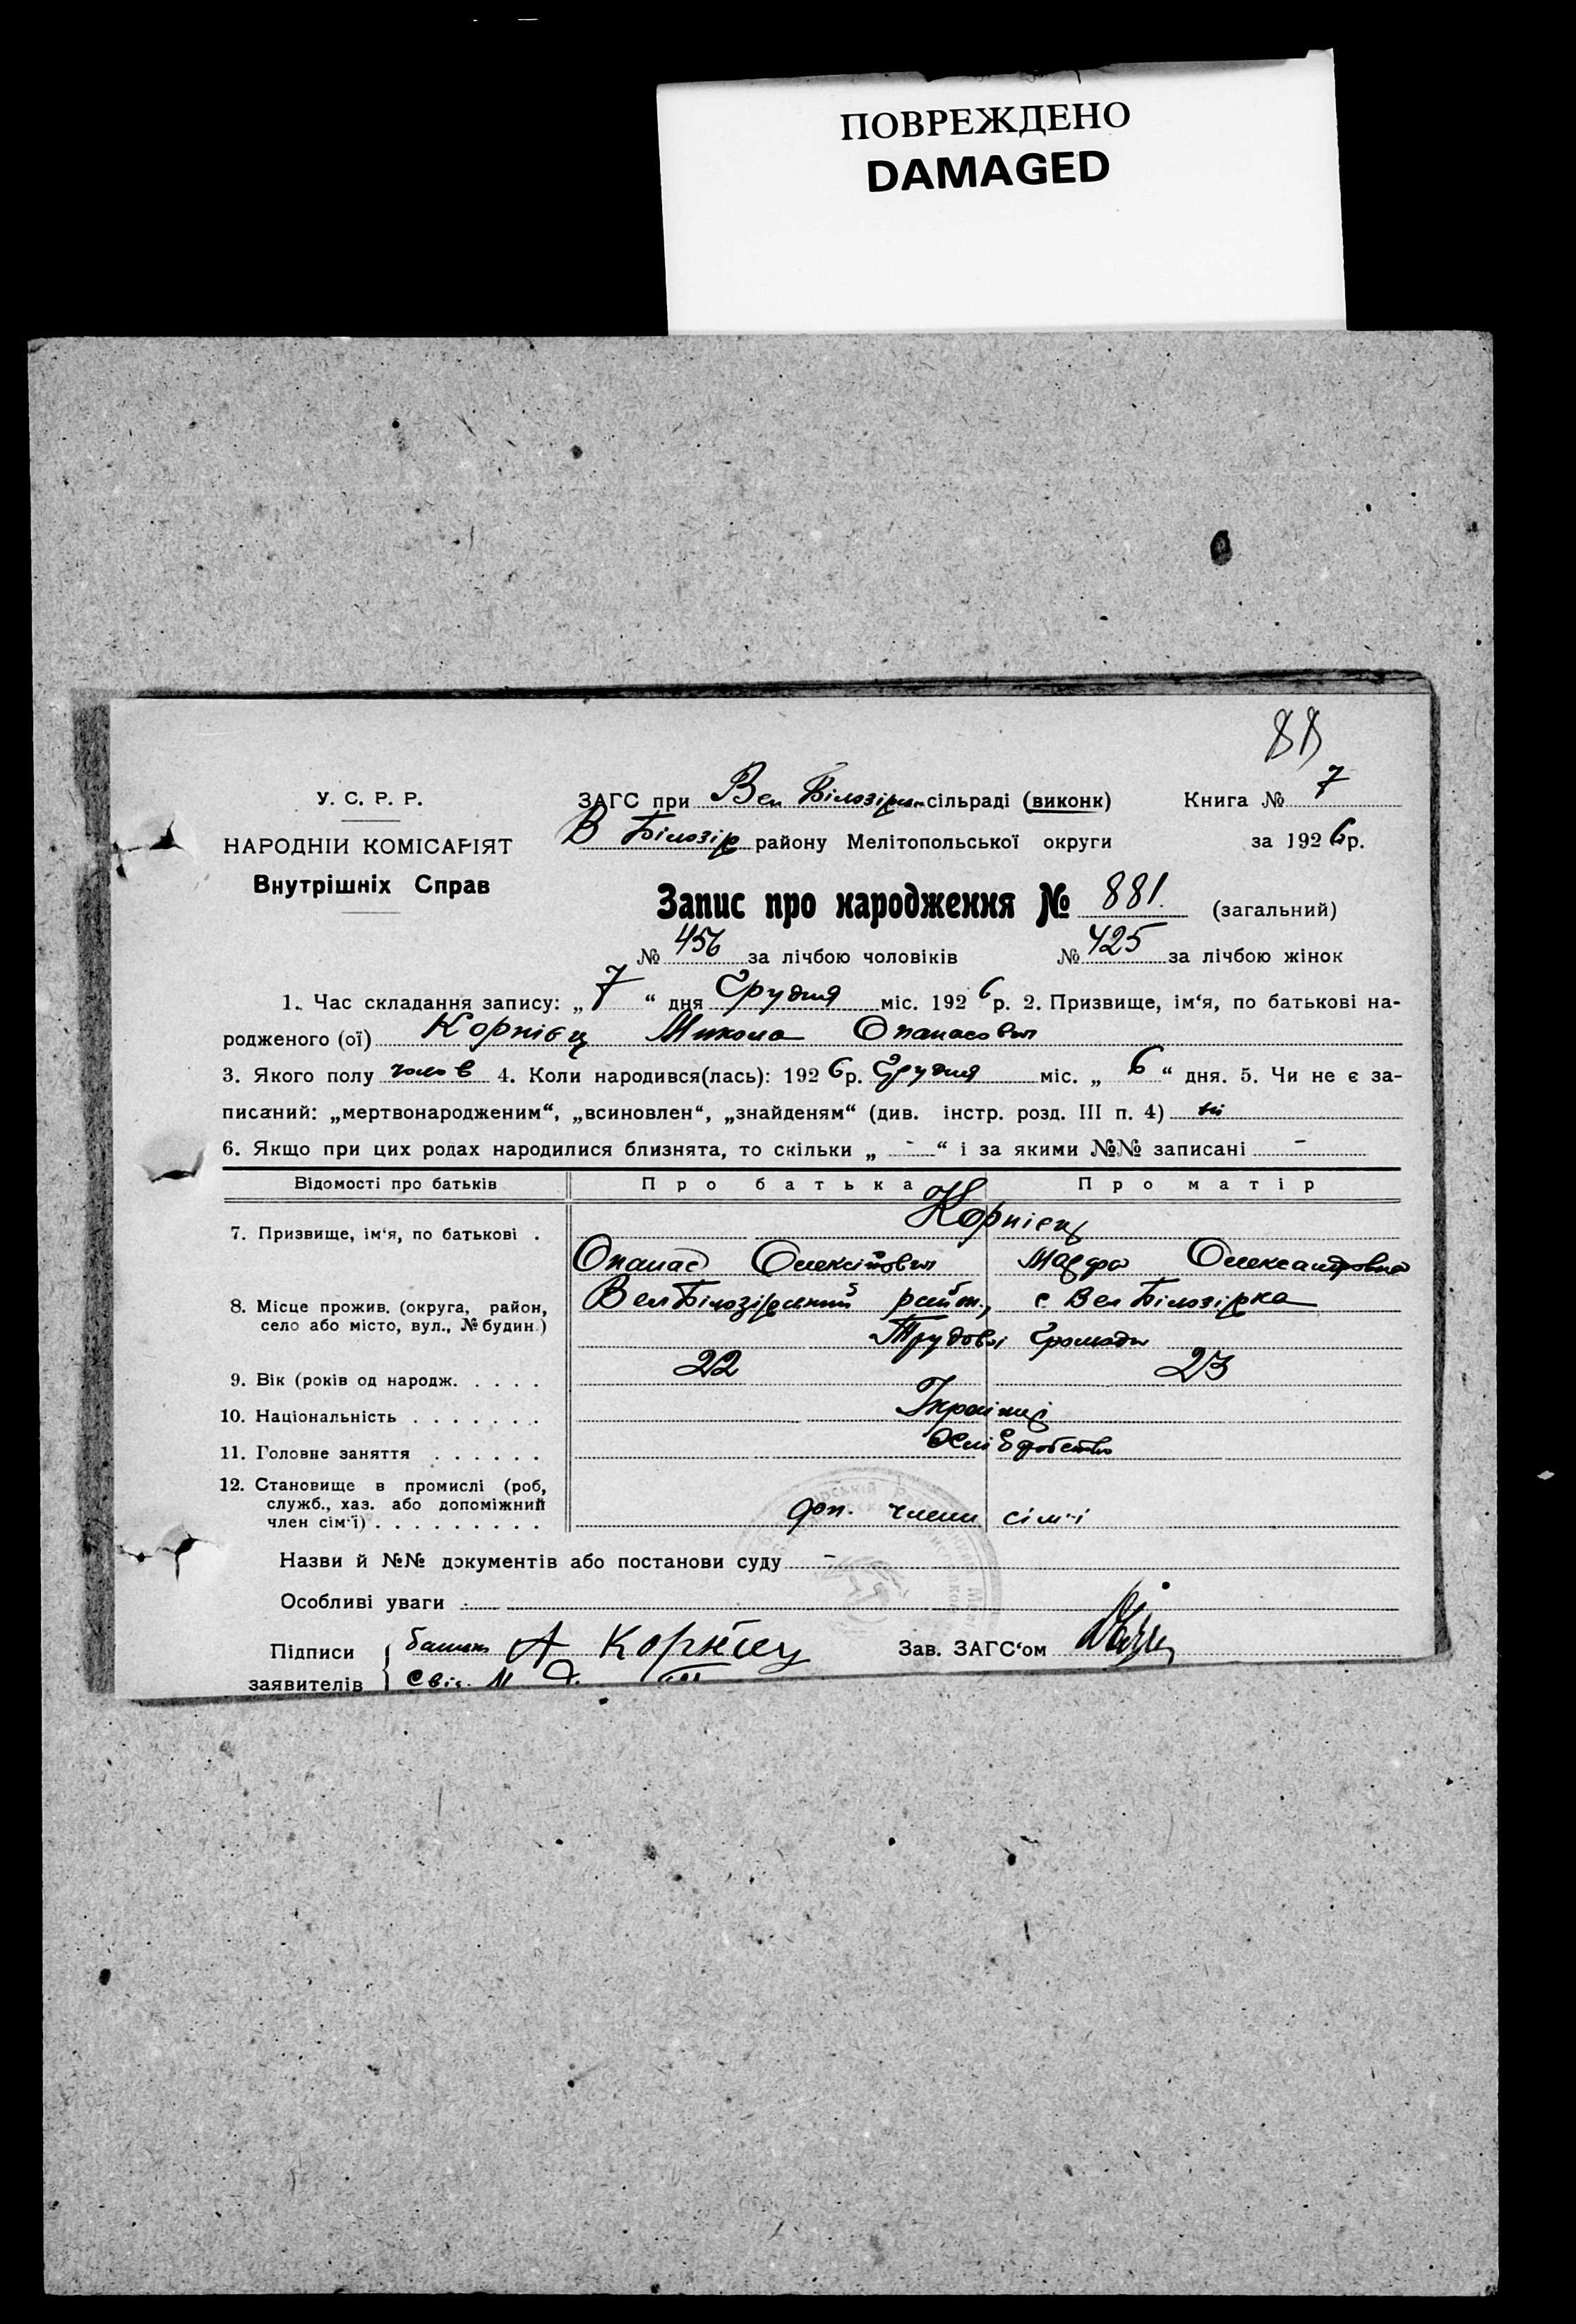 ПОВРЕЖДЕНО
DAMAGED
88
У. С. Р. Р.
НАРОДНІЙ КОМІСАРІЯТ
Внутрішніх Справ
ЗАГС при Вел Білозірськ сільраді (виконк) Книга № 7
В Білозір району Мелітопольської округи за 1926 р.
Запис про народження № 881. (загальний)
№ 456 за лічбою чоловіків № 425 за лічбою жінок
1. Час складання запису: „7“ дня Грудня міс. 1926 р. 2. Призвище, ім‘я, по батькові на-
родженого (ої) Корнієц Микола Опанасович
3. Якого полу чолов 4. Коли народився(лась): 1926 р. Грудня міс. „6“ дня. 5. Чи не є за-
писаний: „мертвонародженим“, „всиновлен“, „знайденям“ (див. інстр. розд. III п. 4) ні
6. Якщо при цих родах народилися близнята, то скільки „ - “ і за якими №№ записані -
Відомості про батьків Про батька Про матір
7. Призвище, ім‘я, по батькові . Корнієц
Опанас Олексійович Мафра Олександровна
8. Місце прожив. (округа, район, село або місто, вул., № будин.) Вел Білозірський район, с Вел Білозірка
Трудової Громади
9. Вік (років од народж. . . . . 22 23
10. Національність . . . . . . . Українці
11. Головне заняття . . . . . . Хліборобство
12. Становище в промислі (роб,
служб., хаз. або допоміжний
член сім‘ї) . . . . . . . . . доп. члени сім‘ї
Назви й №№ документів або постанови суду -
Особливі уваги
Підписи батько А Корнїец Зав. ЗАГС‘ом
заявителів Свід.